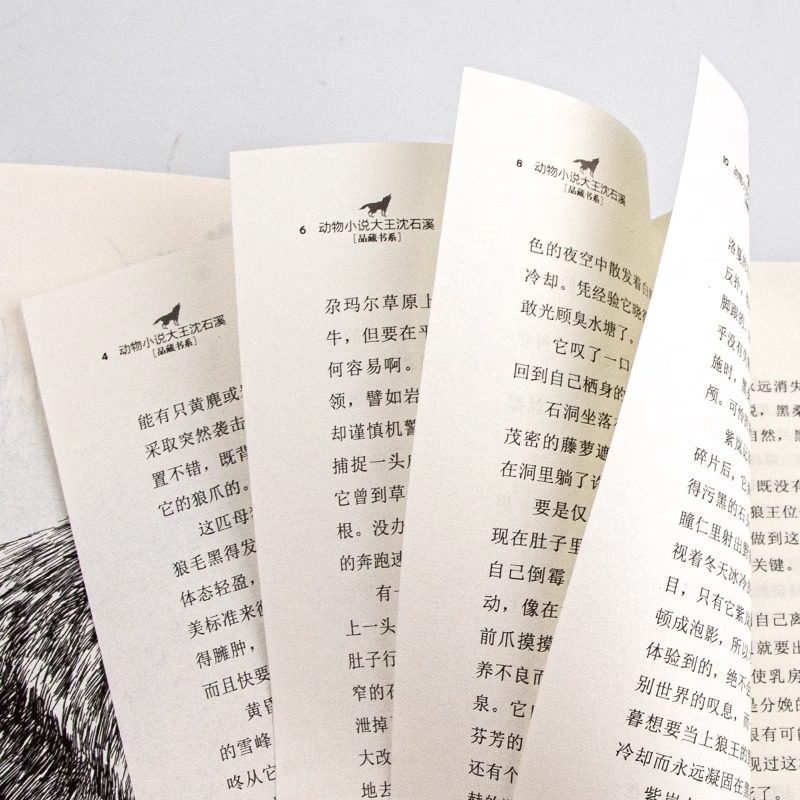 4 动物小说大王沈石溪
[品藏书系]
能有只黄麂或
采取突然袭击
置不错，既背
它的狼爪的。
这匹母
狼毛黑得发
体态轻盈，
美标准来
得臃肿，
而且快要
黄昏
的雪峰
咚从它
6 动物小说大王沈石溪
[品藏书系]
尕玛尔草原上
牛，但要在平
何容易啊。
领，譬如岩
却谨慎机警
捕捉一头
它曾到草
根。没办
的奔跑速
有一
上一头
肚子行
窄的石
泄掉
大改
地去
8 动物小说大王沈石溪
[品藏书系]
色的夜空中散发着
冷却。凭经验它晓得
敢光顾臭水塘了。
它叹了一口
回到自己栖身的
石洞坐落
茂密的藤萝遮
在洞里躺了许
要是仅
现在肚子里
自己倒霉
动，像在
前爪摸摸
养不良而
泉。它
芬芳的
还有个
10 动物
反扑，
脚踝的
乎没有
施时，
颅。可怜的
紫岚
碎片后，它
得污黑的石
瞳仁里射出
视着冬天冰冷
目，只有它紫岚
顿成泡影，所以
体验到的，绝不
别世界的叹息，而
暮想要当上狼王的
冷却而永远凝固在
紫岚
永远消失
说，黑桑
自然，黑
既没有
狼王位
做到这
关键。
自己离
就要出
使乳房
是分娩的
很有可能
见过这
了。